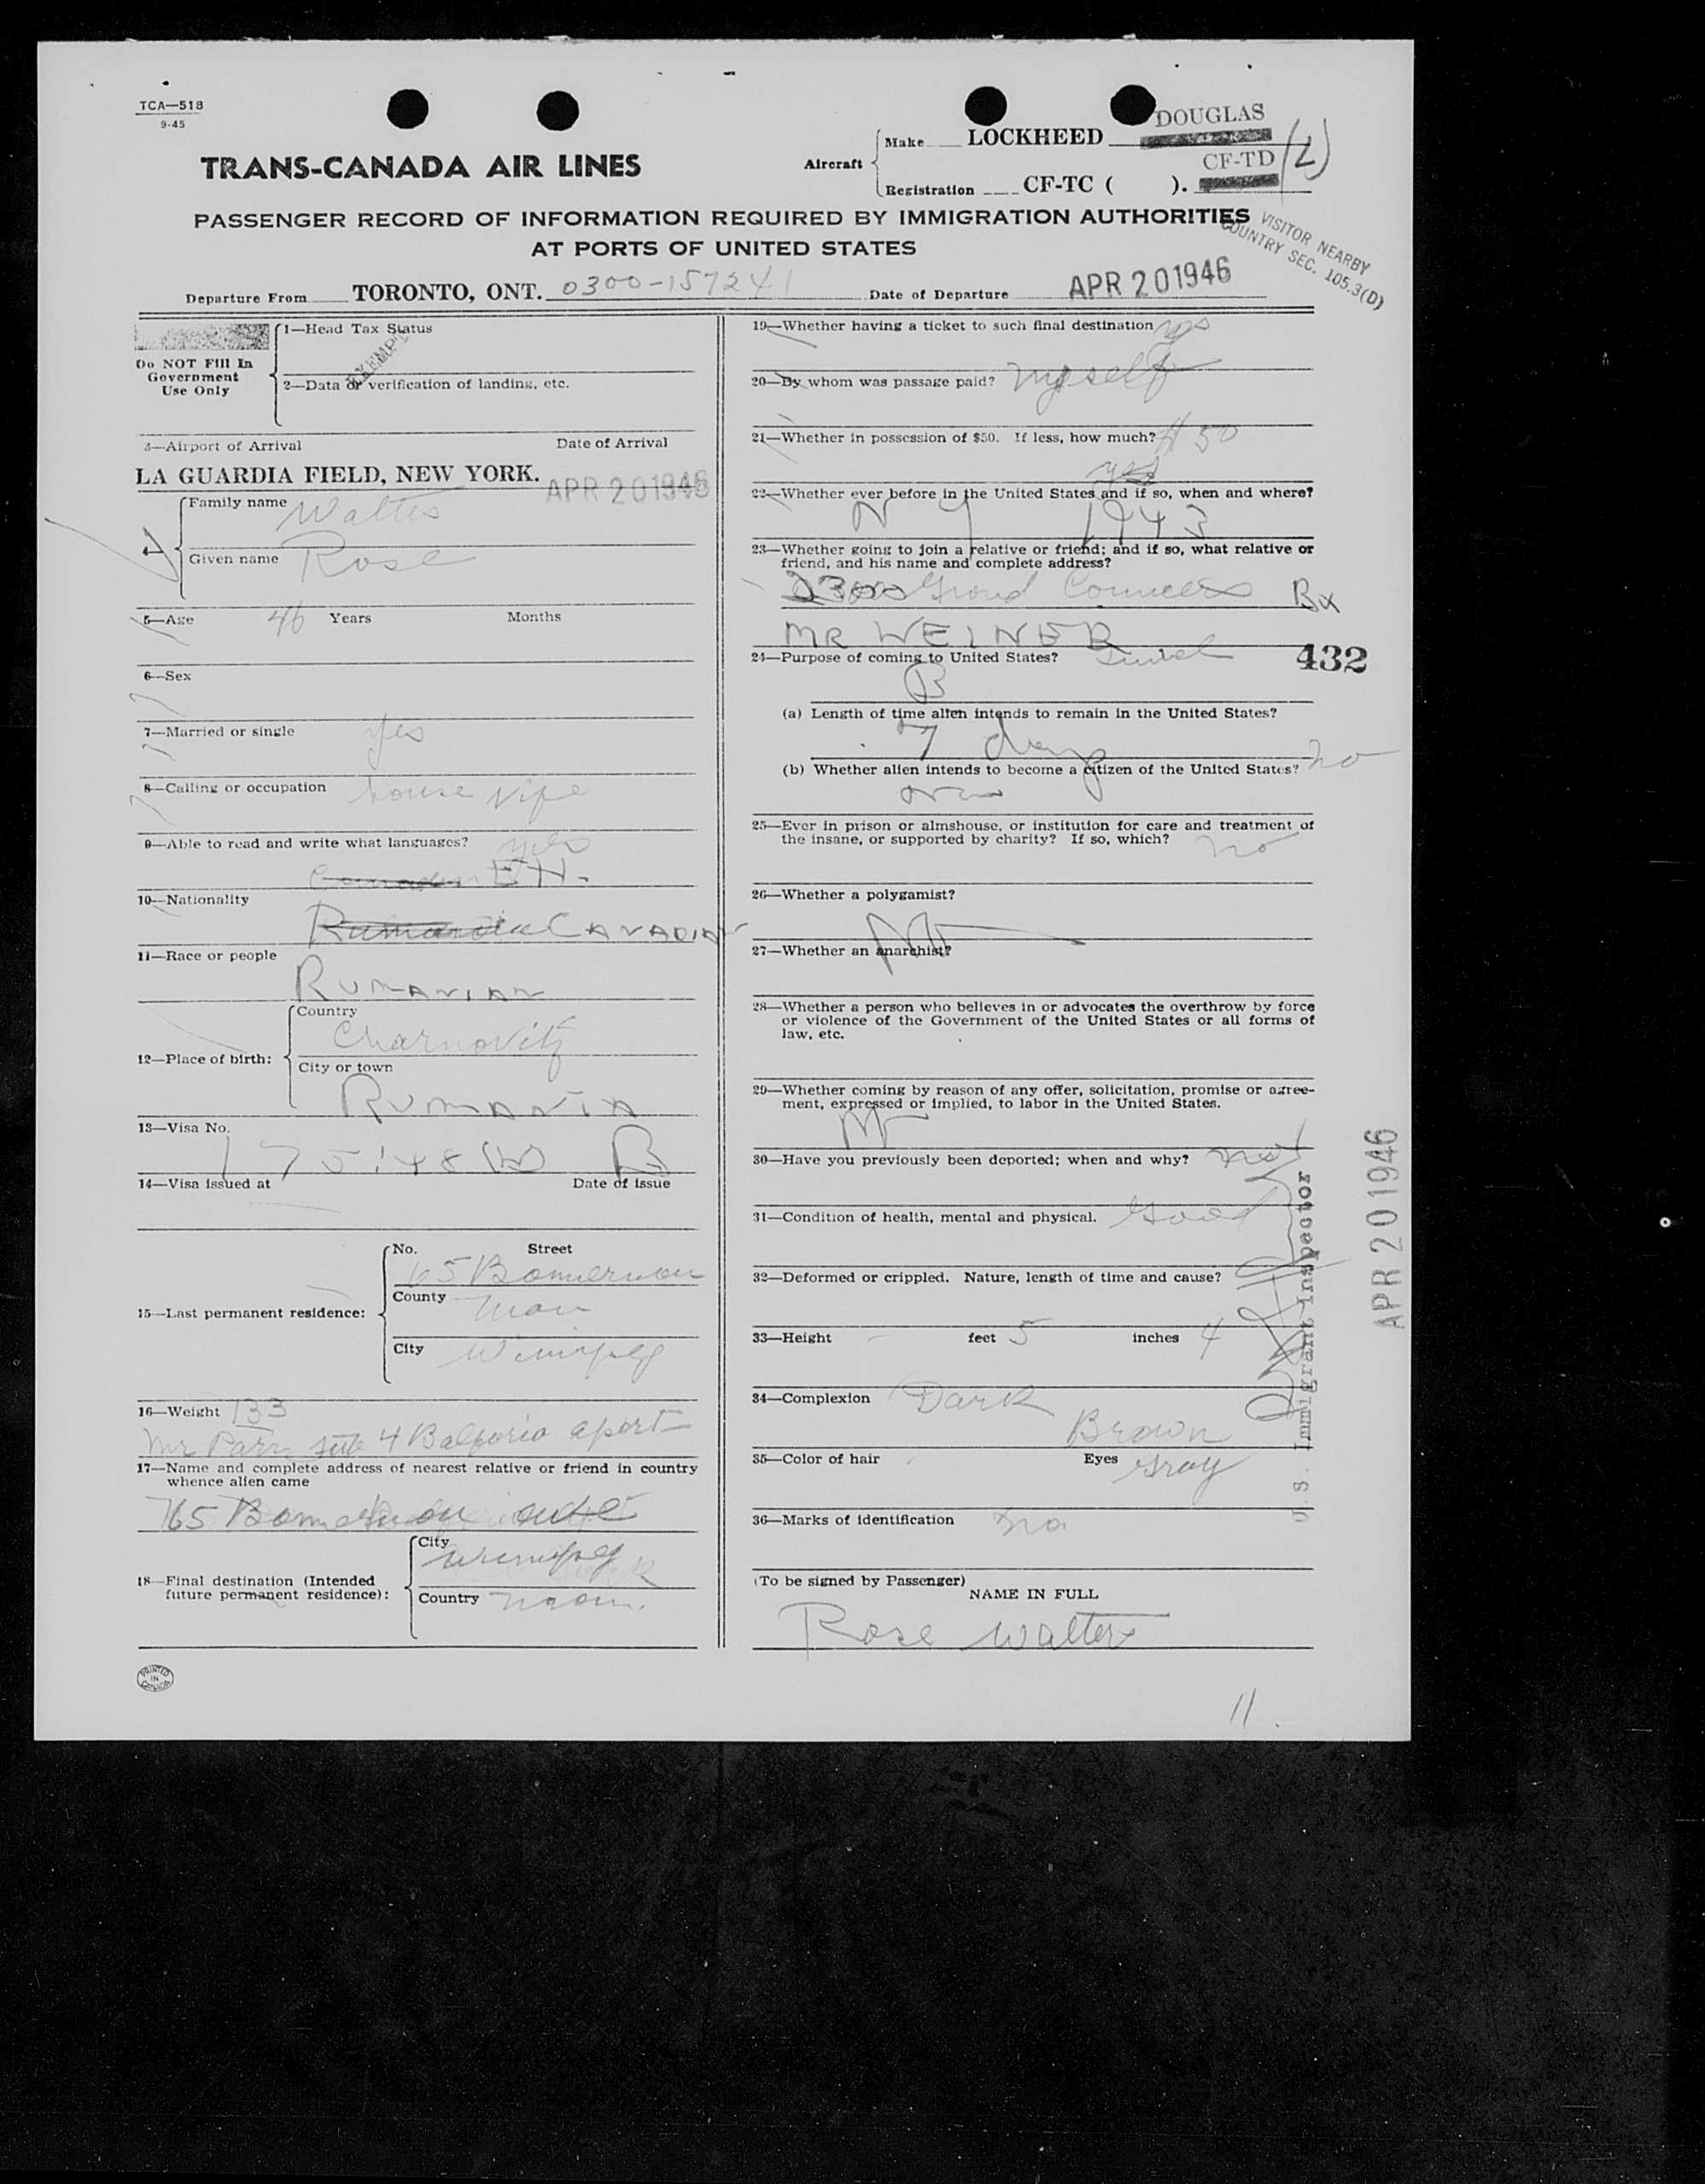 TCA—518
9-45
TRANS-CANADA AIR LINES
Aircraft
Make LOCKHEED DOUGLAS
Registration CF-TC ( ). CF-TD (L)
PASSENGER RECORD OF INFORMATION REQUIRED BY IMMIGRATION AUTHORITIES
AT PORTS OF UNITED STATES
VISITOR NEARBY
COUNTRY SEC. 105.3(D)
Departure From TORONTO, ONT. 0300-157241 Date of Departure APR 20 1946
Do NOT Fill In
Government
Use Only
1—Head Tax Status
EXEMPT
2—Data of verification of landing, etc.
3—Airport of Arrival Date of Arrival
LA GUARDIA FIELD, NEW YORK. APR 20 1946
4—
Family name Walters
Given name Rose
5—Age 46 Years Months
6—Sex
7—Married or single yes
8—Calling or occupation house vife
9—Able to read and write what languages? yes
EH.
10—Nationality
CANADIAN
11—Race or people
RUMANIAN
12—Place of birth:
Country
Charnovitz
City or town
RUMANIA
13—Visa No.
175148 (W) B
14—Visa issued at Date of issue
15—Last permanent residence:
No. Street
65
County Man
City Winnipeg
16—Weight 133
Mr Parr 4 apert
17—Name and complete address of nearest relative or friend in country
whence alien came
765
18—Final destination (Intended
future permanent residence):
City
Winnipeg
Country Man.
PRINTED
IN
CANADA
19—Whether having a ticket to such final destination yes
20—By whom was passage paid? myself
21—Whether in possession of $50. If less, how much? $50
yes
22—Whether ever before in the United States and if so, when and where?
N Y 1943
23—Whether going to join a relative or friend; and if so, what relative or
friend, and his name and complete address?
2300 Grond Bx
MR WEINER
24—Purpose of coming to United States?
B
432
(a) Length of time alien intends to remain in the United States?
7 days
(b) Whether alien intends to become a citizen of the United States? no
25—Ever in prison or almshouse, or institution for care and treatment of
the insane, or supported by charity? If so, which? no
26—Whether a polygamist?
No
27—Whether an anarchist?
28—Whether a person who believes in or advocates the overthrow by force
or violence of the Government of the United States or all forms of
law, etc.
29—Whether coming by reason of any offer, solicitation, promise or agree-
ment, expressed or implied, to labor in the United States.
No
30—Have you previously been deported; when and why? no
31—Condition of health, mental and physical. Good
32—Deformed or crippled. Nature, length of time and cause?
33—Height feet 5 inches 4
34—Complexion Dark
Brown
35—Color of hair Eyes gray
36—Marks of identification no
(To be signed by Passenger)
NAME IN FULL
Rose Walters
U.S. Immigrant Inspector
APR 20 1946
11.